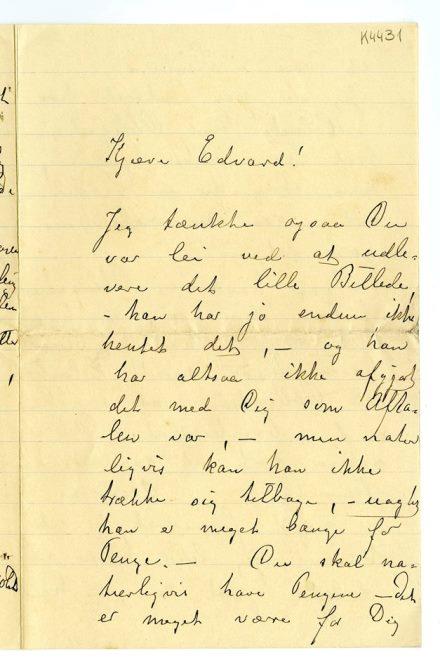 K4431
Kjære Edvard!
Jeg tænkte ogsaa Du
var lei ved at udle-
vere det lille Billede,
- han har jo endnu ikke
hentet det, – og han
har altsaa ikke afgjort
det med Dig som Afta-
len var, – men natur
ligvis kan han ikke
trække sig tilbage, –
han er meget bange for
Penge. – Du skal na-
turligvis have Pengene – det
er meget værre for Dig